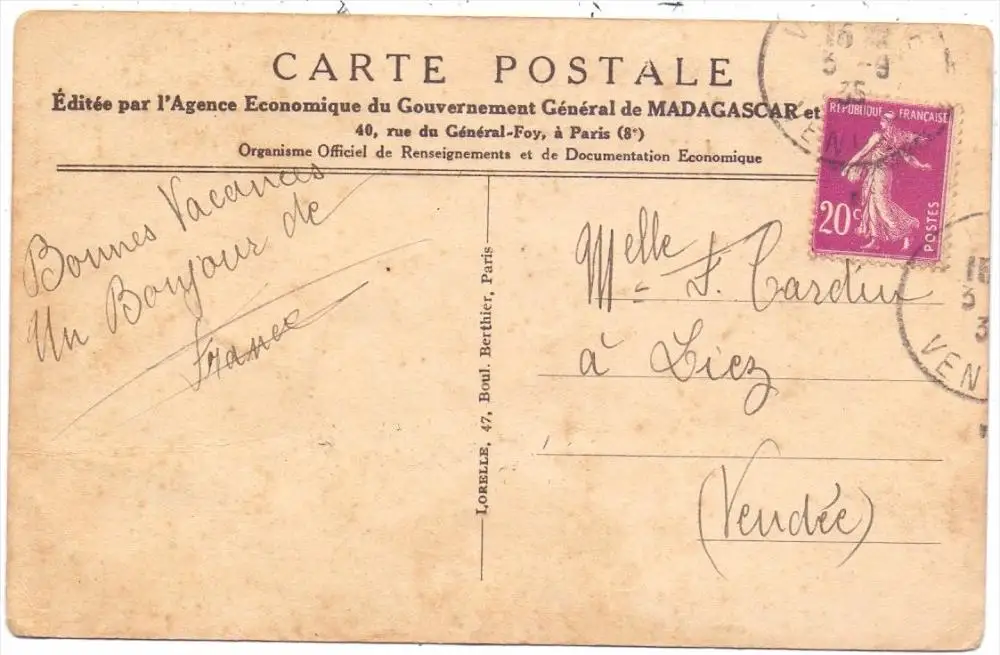 CARTE POSTALE
Éditée par l'Agence Economique du Gouvernement Général de MADAGASCAR et
40, rue du Général-Foy, à Paris (8e)
Organisme Officiel de Renseignements et de Documentation Economique
REPUBLIQUE FRANÇAISE
20c
POSTES
16
3 -9
35
Bonnes Vacances
Un Bonjour de
France
LORELLE, 47, Boul. Berthier, Paris
Melle F. Tardin
à Liez
(Vendée)
3
3
VEN